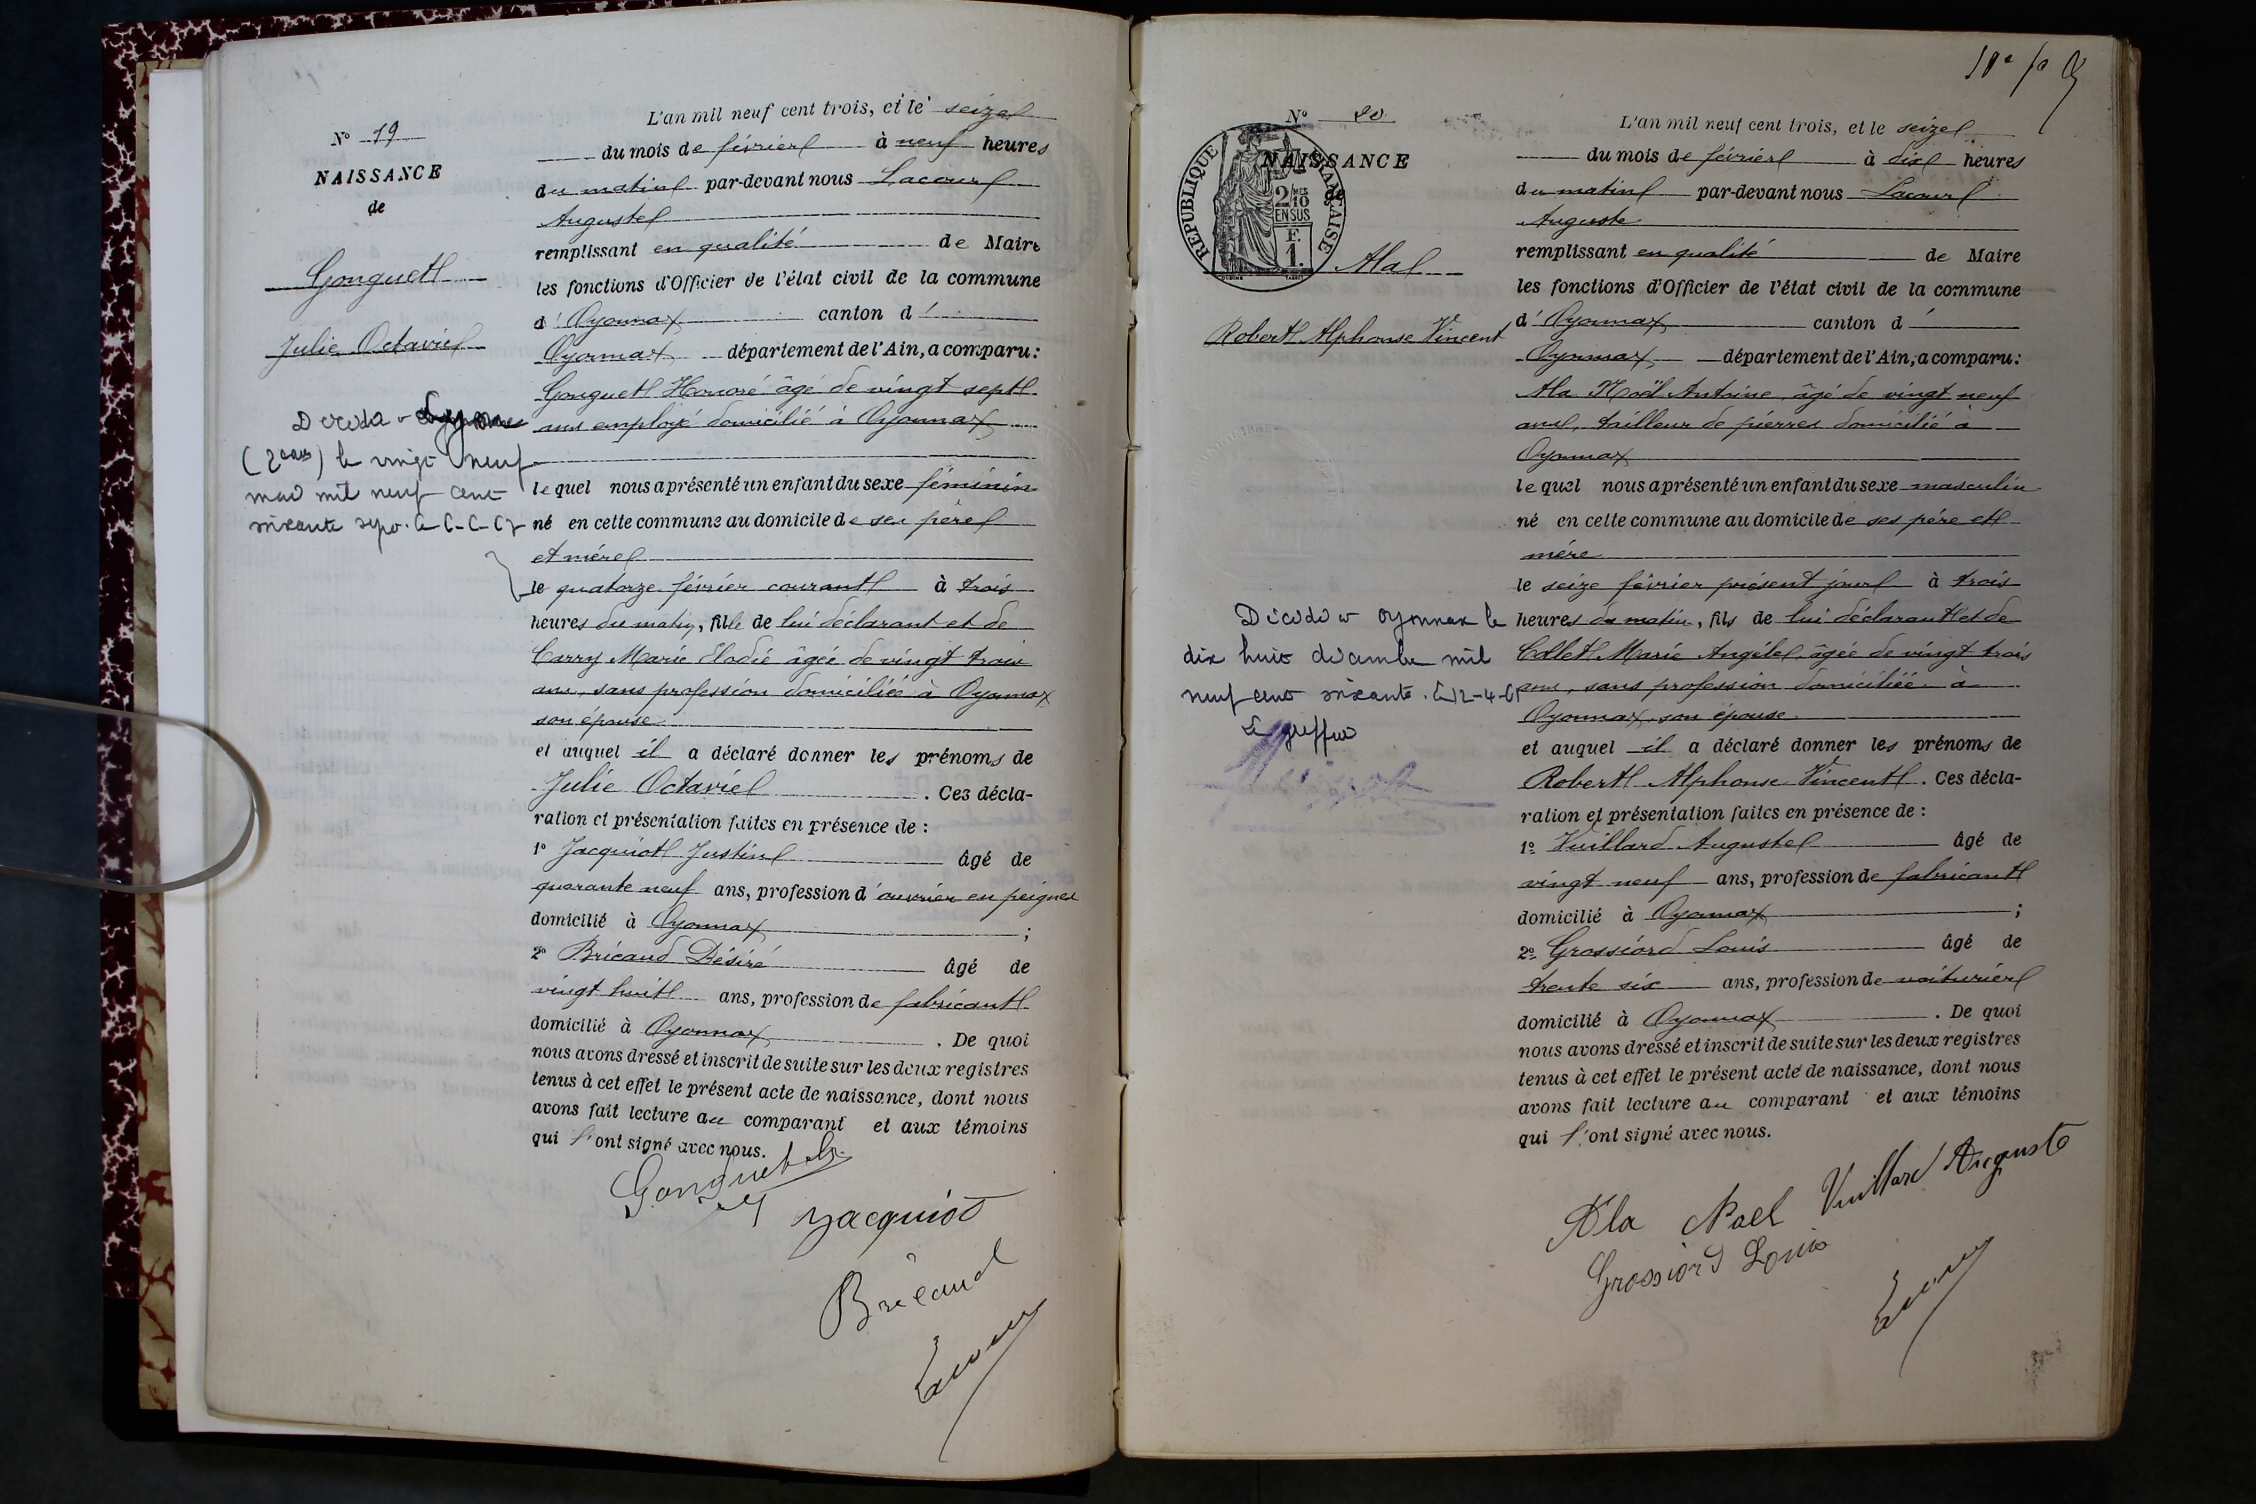 N° 19
NAISSANCE
de
Gonguet
Julie Octavie
Décédée à
le vingt neuf
mai mil neuf cent
soixante sept.
L'an mil neuf cent trois, et le seize
du mois de février à neuf heures
du matin par-devant nous Lacour
Auguste
remplissant en qualité de Maire
les fonctions d'Officier de l'état civil de la commune
d'Oyonnax canton d'
Oyonnax département de l'Ain, a comparu:
Gonguet Honoré âgé de vingt sept
ans employé domicilié à Oyonnax
lequel nous a présenté un enfant du sexe féminin
né en cette commune au domicile de ses père
et mère
le quatorze février courant à trois
heures du matin, fille de lui déclarant et de
Carry Marie Elodie âgée de vingt trois
ans, sans profession domiciliée à Oyonnax
son épouse
et auquel il a déclaré donner les prénoms de
Julie Octavie . Ces décla-
ration et présentation faites en présence de :
1° Jacquiot Justin âgé de
quarante neuf ans, profession d'ouvrier en peignes
domicilié à Oyonnax ;
2° Bricaud Désiré âgé de
vingt huit ans, profession de fabricant
domicilié à Oyonnax . De quoi
nous avons dressé et inscrit de suite sur les deux registres
tenus à cet effet le présent acte de naissance, dont nous
avons fait lecture au comparant et aux témoins
qui l'ont signé avec nous.
Gonguet
Jacquiot
Bricaud
Lacour
N° 20
NAISSANCE
REPUBLIQUE FRANÇAISE
2/10
EN SUS
F.
1.
Ala
Robert Alphonse Vincent
Décédé à Oyonnax le
dix huit décembre mil
neuf cent soixante. Le 12-4-61
Le greffier
L'an mil neuf cent trois, et le seize
du mois de février à dix heures
du matin par-devant nous Lacour
Auguste
remplissant en qualité de Maire
les fonctions d'Officier de l'état civil de la commune
d'Oyonnax canton d'
Oyonnax département de l'Ain, a comparu:
Ala Noël Antoine âgé de vingt neuf
ans, tailleur de pierres domicilié à
Oyonnax
lequel nous a présenté un enfant du sexe masculin
né en cette commune au domicile de ses père et
mère
le seize février présent jour à trois
heures du matin, fils de lui déclarant et de
Collet Marie Angèle, âgée de vingt trois
ans, sans profession domiciliée à
Oyonnax, son épouse
et auquel il a déclaré donner les prénoms de
Robert Alphonse Vincent . Ces décla-
ration et présentation faites en présence de :
1° Vuillard Auguste âgé de
vingt neuf ans, profession de fabricant
domicilié à Oyonnax ;
2° Grossiord Louis âgé de
trente six ans, profession de voiturier
domicilié à Oyonnax . De quoi
nous avons dressé et inscrit de suite sur les deux registres
tenus à cet effet le présent acte de naissance, dont nous
avons fait lecture au comparant et aux témoins
qui l'ont signé avec nous.
Ala Noel Vuillard Auguste
Grossiord Louis
Lacour